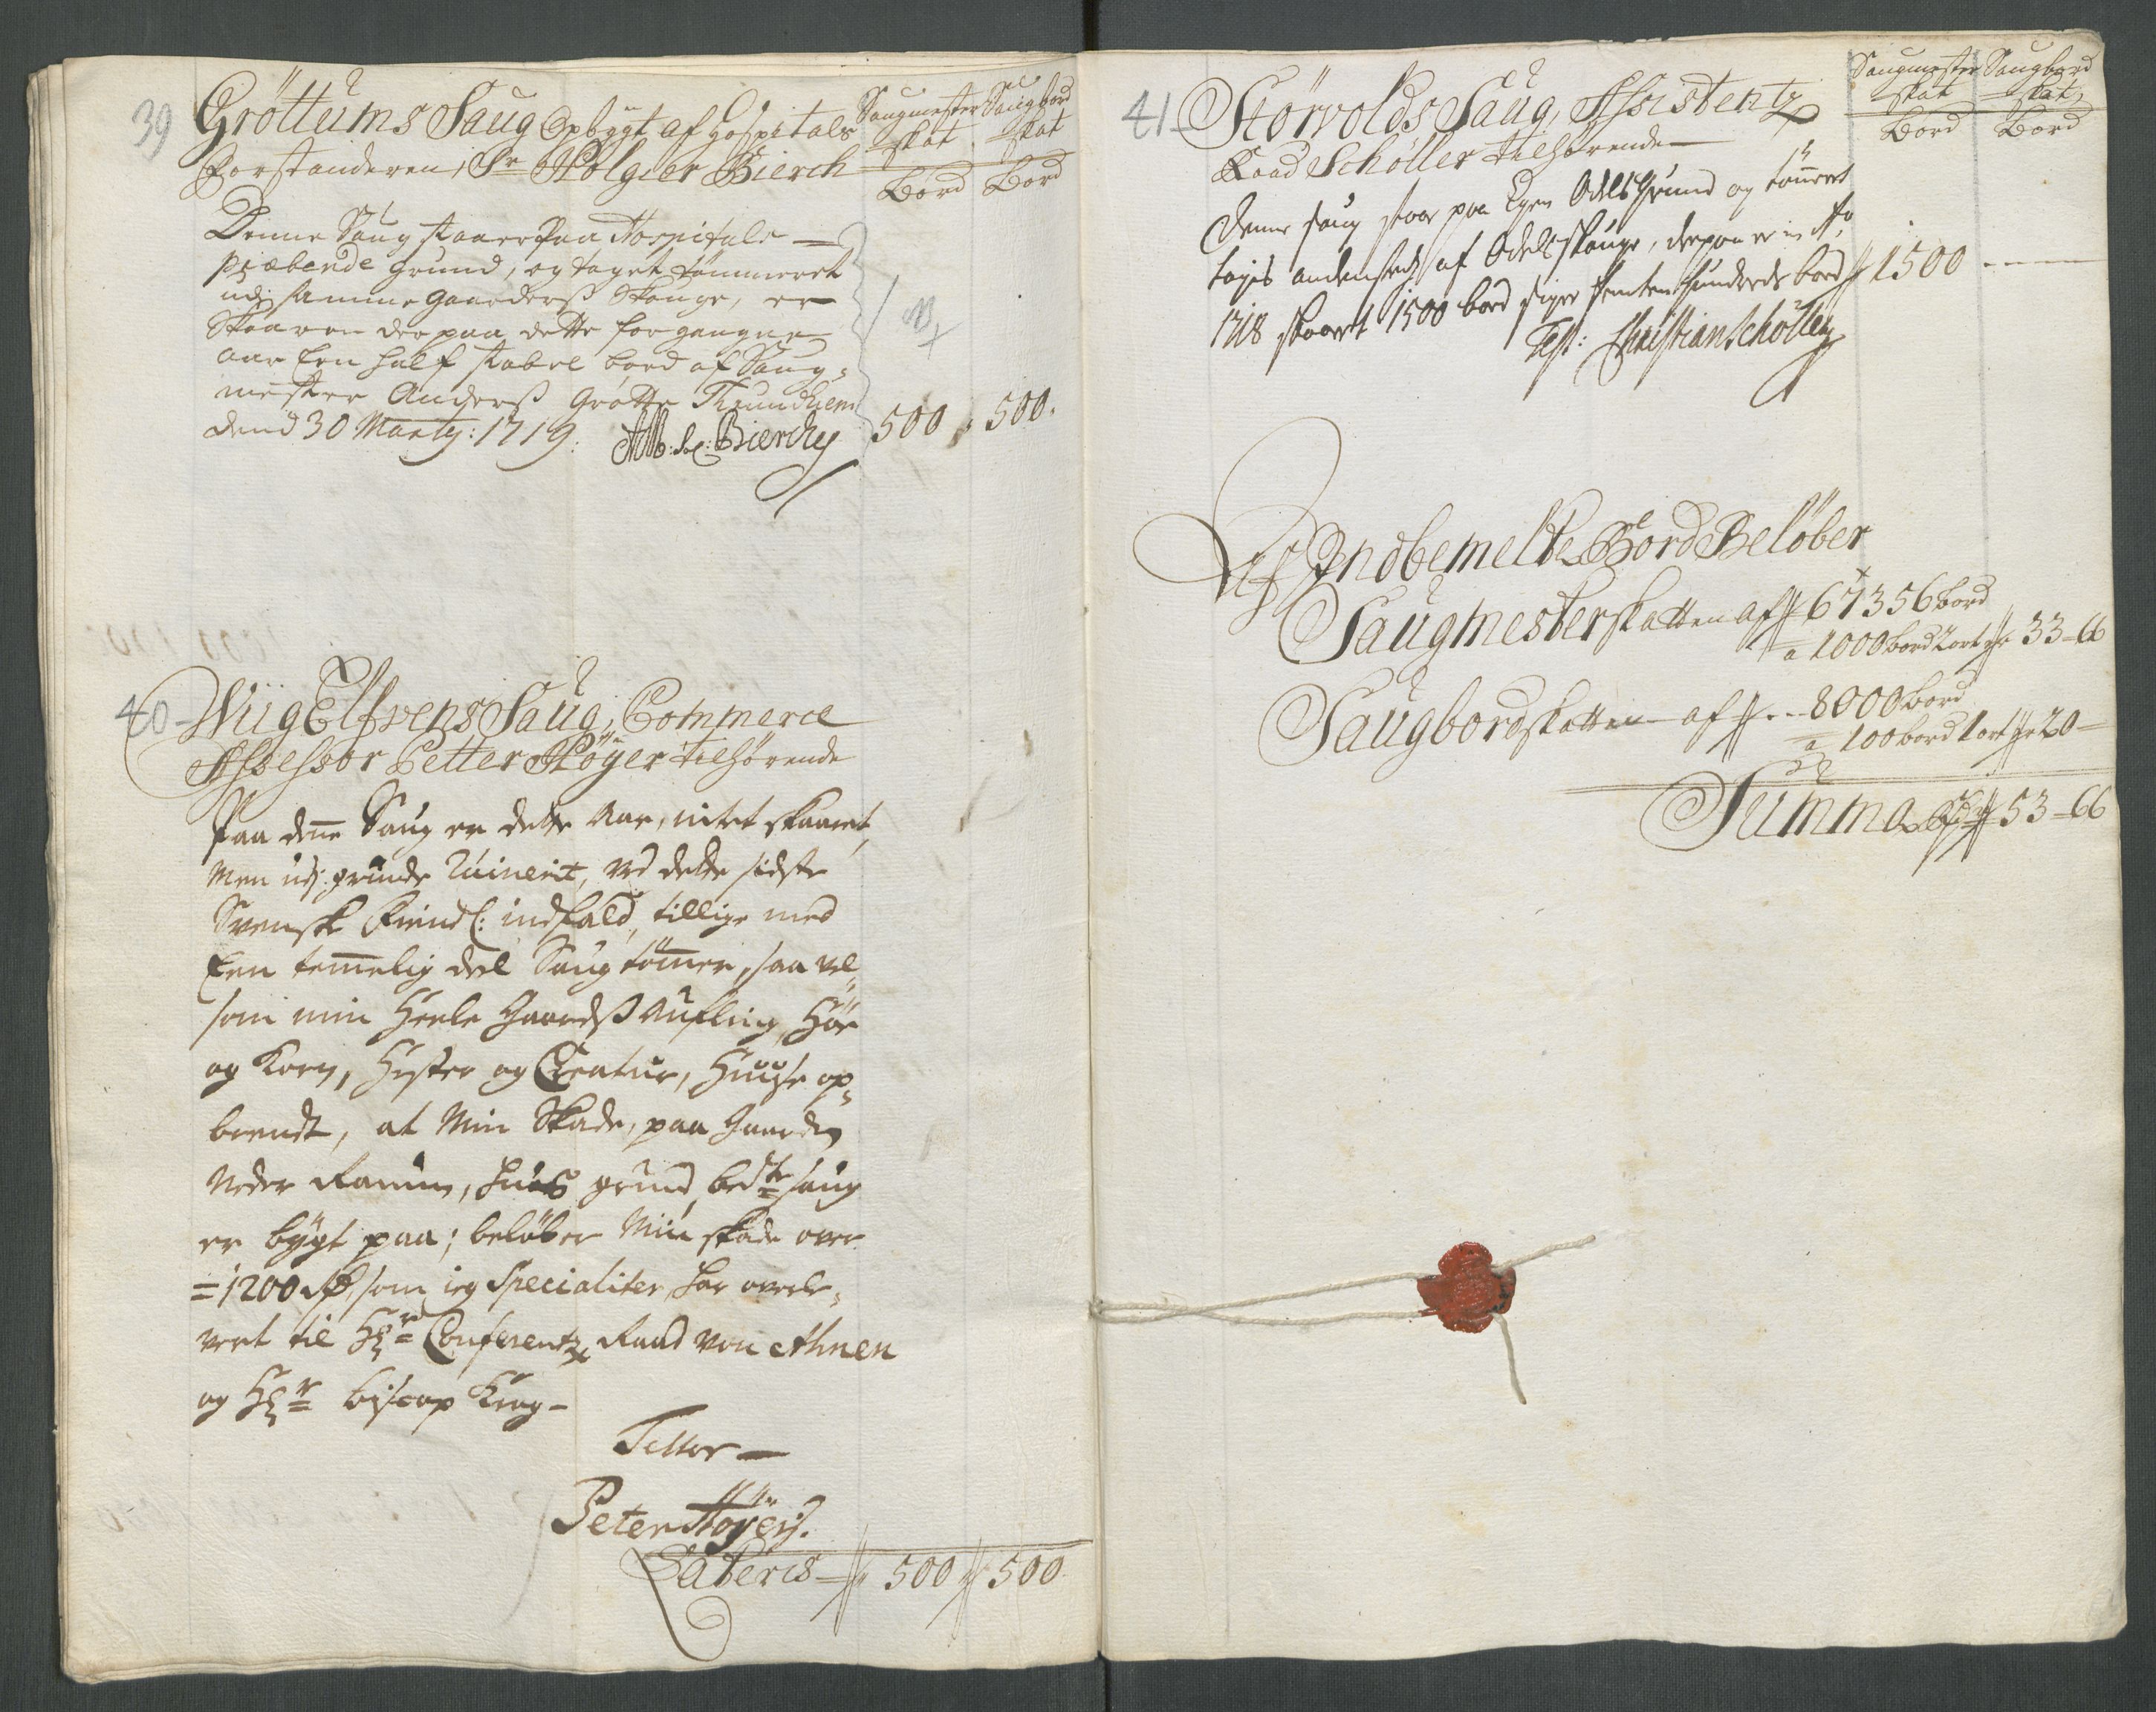 39
Gröttums Saug Opbygt af Hospitals
Forstanderen Sr Holgier Bierch
Saugmester Saugbord
skat skat
Bord Bord
Denne Saug staaer paa Hospitals
præbende grund, og taget tømmeret
udj samme gaarderß Skouge, er
Skaaren derpaa dette forgangne
aar Een half stabel bord af Saug-
mester Anderß Grøtte Trundhiem
dend 30 Marty: 1719. Bierch
500 500.
40 Wiig Elfvens Saug, Commerce
Assessor Petter Höyer tilhørende
Paa denne Saug er dette Aar, intet skaaret,
Men udj grunde Ruinerit, ved dette sidste
Svensk Fiendl: indfald, tillige med
Een temelig deel Saug tömer, saa vel
som min Heele Gaardß Aufling, Höe
og Korn, Hester og Creatur, Huuse op-
brendt, at Min Skade, paa Gaarden
Neder Ranum, huis grund bedte saug
er bygt paa; beløber Min skade over
=1200 Rd, som ieg Specialiter har overle-
vert til Hr Conferentz Raad von Ahnen
og Hr biscop Krog-
Testor
Peter Höyer.
Lateris 500 500
41 Störvolds Saug, Assistentz
Raad Schöller tilhørende
Saugmester Saugbord
skat skat
Bord Bord
Denne saug staar paa Egen Odels Grund og tömeret
tages andensteds af Odels skouge, derpaa er in Ao
1718 skaaret 1500 bord siger femten Hundrede bord 1500
Test: Christian Schöller
Af Indbemelte Bord Beløber
Saugmesterskatten af 67356 bord
a 1000 bord 2 ort er 33-66
Saugbordskatten af 8000 bord
a 100 bord 1 ort er 20-
Summa 53-66